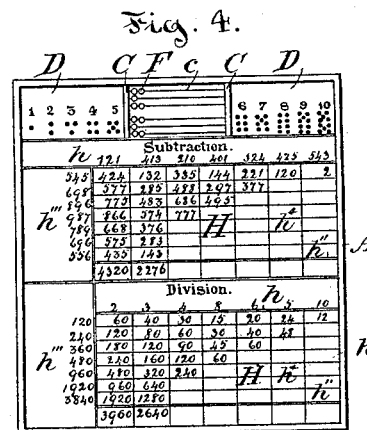 Fig. 4.
D C F c C D
1 2 3 4 5 6 7 8 9 10
Subtraction.
h 121 413 210 401 324 425 543
545 424 132 335 144 221 120 2
698 577 285 488 297 377
896 775 483 686 495
h''' 987 866 574 777 H h⁴
789 668 376
696 575 283 h''
556 435 143
4320 2276
Division. h
2 3 4 8 6 5 10
120 60 40 30 15 20 24 12
240 120 80 60 30 40 48
360 180 120 90 45 60
h''' 480 240 160 120 60 h
960 480 320 240 H h⁴
1920 960 640 h''
3840 1920 1280
3960 2640